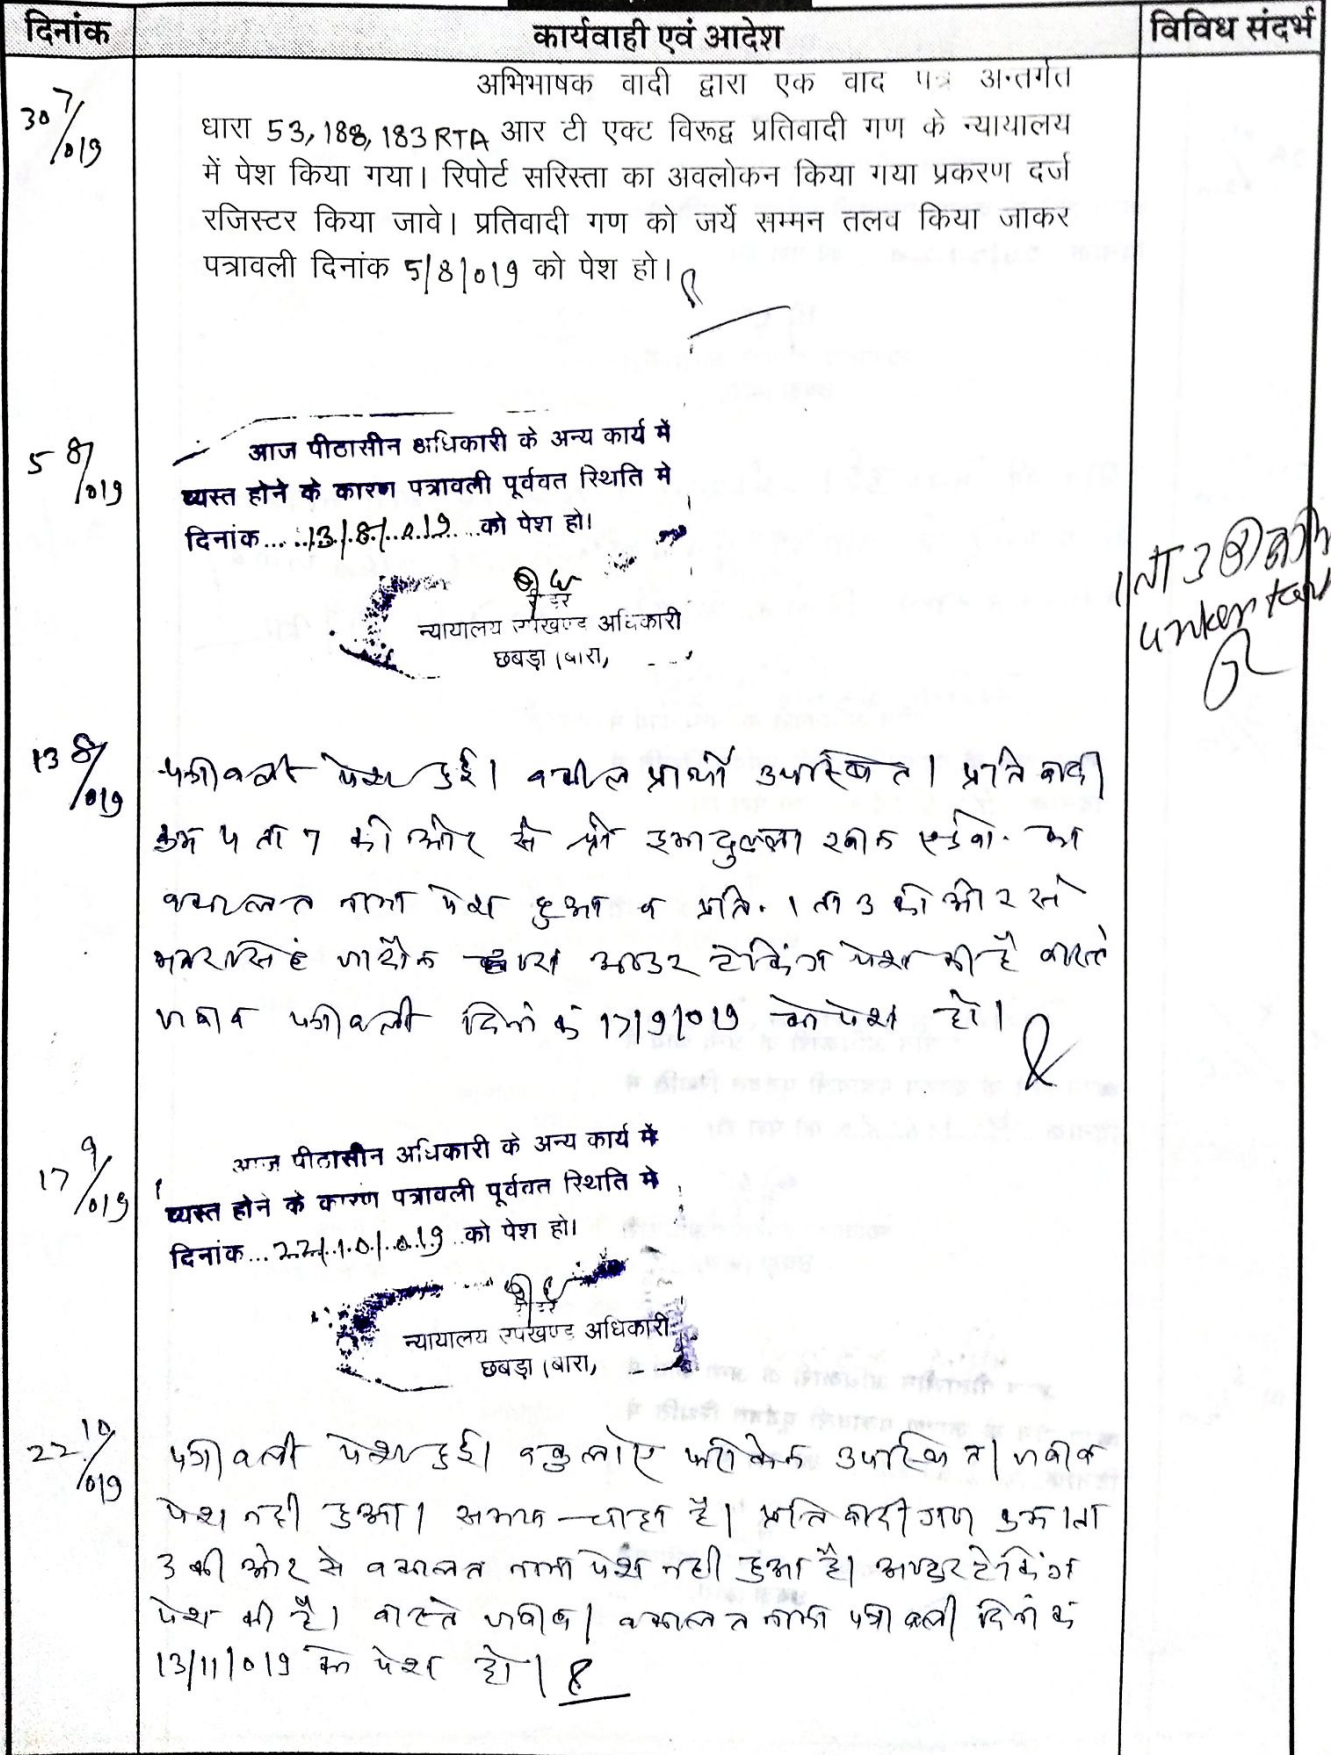 दिनांक
कार्यवाही एवं आदेश
विविध संदर्भ
30/7/019
अभिभाषक वादी द्वारा एक वाद पत्र अन्तर्गत
धारा 53, 188, 183 RTA आर टी एक्ट विरूद्व प्रतिवादी गण के न्यायालय
में पेश किया गया। रिपोर्ट सरिस्ता का अवलोकन किया गया प्रकरण दर्ज
रजिस्टर किया जावे। प्रतिवादी गण को जर्ये सम्मन तलव किया जाकर
पत्रावली दिनांक 5/8/019 को पेश हो।
5 8/019
आज पीठासीन अधिकारी के अन्य कार्य में
व्यस्त होने के कारण पत्रावली पूर्ववत स्थिति मे
दिनांक.....13/8/019...को पेश हो।
रीडर
न्यायालय उपखण्ड अधिकारी
छबड़ा (बारा)
1 ता 3 की ओर
13 8/019
पत्रावली पेश हुई। वकील प्रार्थी उपस्थित। प्रतिवादी
क्रम 4 ता 7 की ओर से श्री इमादुल्ला खान एडवो. का
वकालत नामा पेश हुआ व प्रति. 1 ता 3 की ओर से
अण्डर टेकिंग पेश की है वास्ते
जवाब पत्रावली दिनांक 17/9/019 को पेश हो।
17 9/019
आज पीठासीन अधिकारी के अन्य कार्य में
व्यस्त होने के कारण पत्रावली पूर्ववत स्थिति मे
दिनांक...22/10/019..को पेश हो।
रीडर
न्यायालय उपखण्ड अधिकारी
छबड़ा (बारा)
22 10/019
पत्रावली पेश हुई। वकुलाए फरीकेन उपस्थित। जवाब
पेश नही हुआ। समय चाहा है। प्रतिवादी गण क्रम 1 ता
3 की ओर से वकालत नामा पेश नही हुआ है। अण्डर टेकिंग
पेश की है। वास्ते जवाब। वकालत नामा पत्रावली दिनांक
13/11/019 को पेश हो।